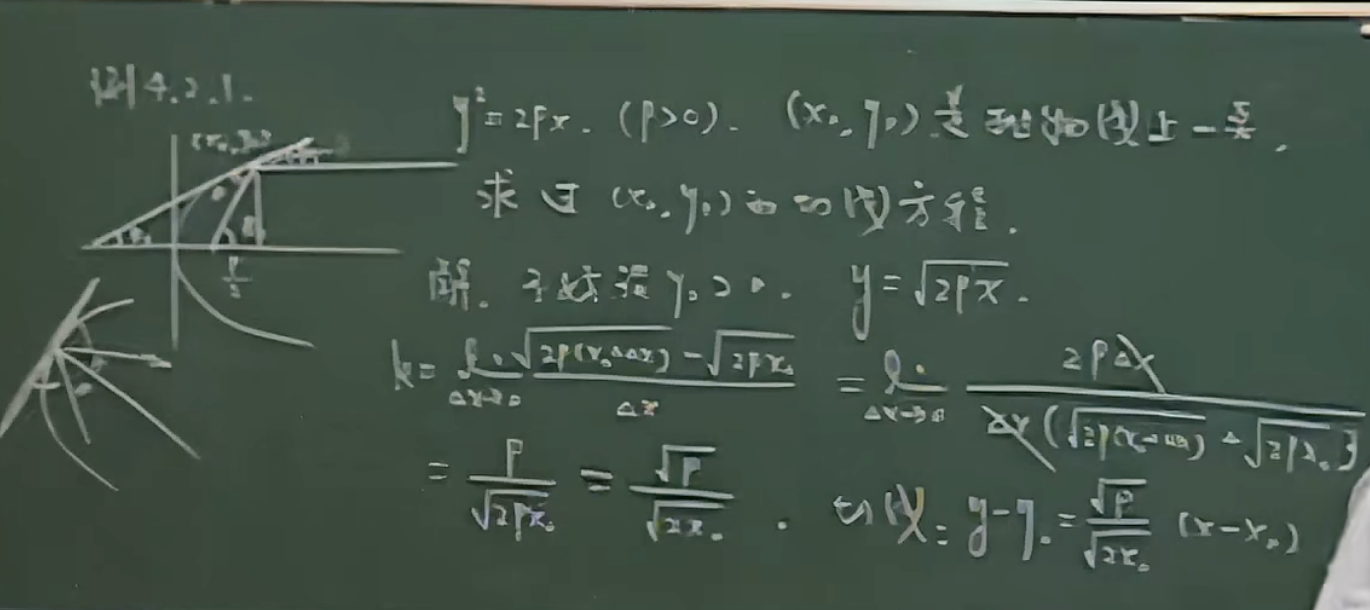 例4.2.1.
y²=2px. (p>0). (x₀,y₀)是抛物线上一点,
(x₀,y₀)
求过(x₀,y₀)的切线方程.
p/2
解. 不妨设y₀>0. y=√(2px).
k=lim_{Δx→0} (√(2p(x₀+Δx))-√(2px₀))/Δx = lim_{Δx→0} 2pΔx/(Δx(√(2p(x₀+Δx))+√(2px₀)))
=p/√(2px₀)=√p/√(2x₀). 切线: y-y₀=√p/√(2x₀) (x-x₀)